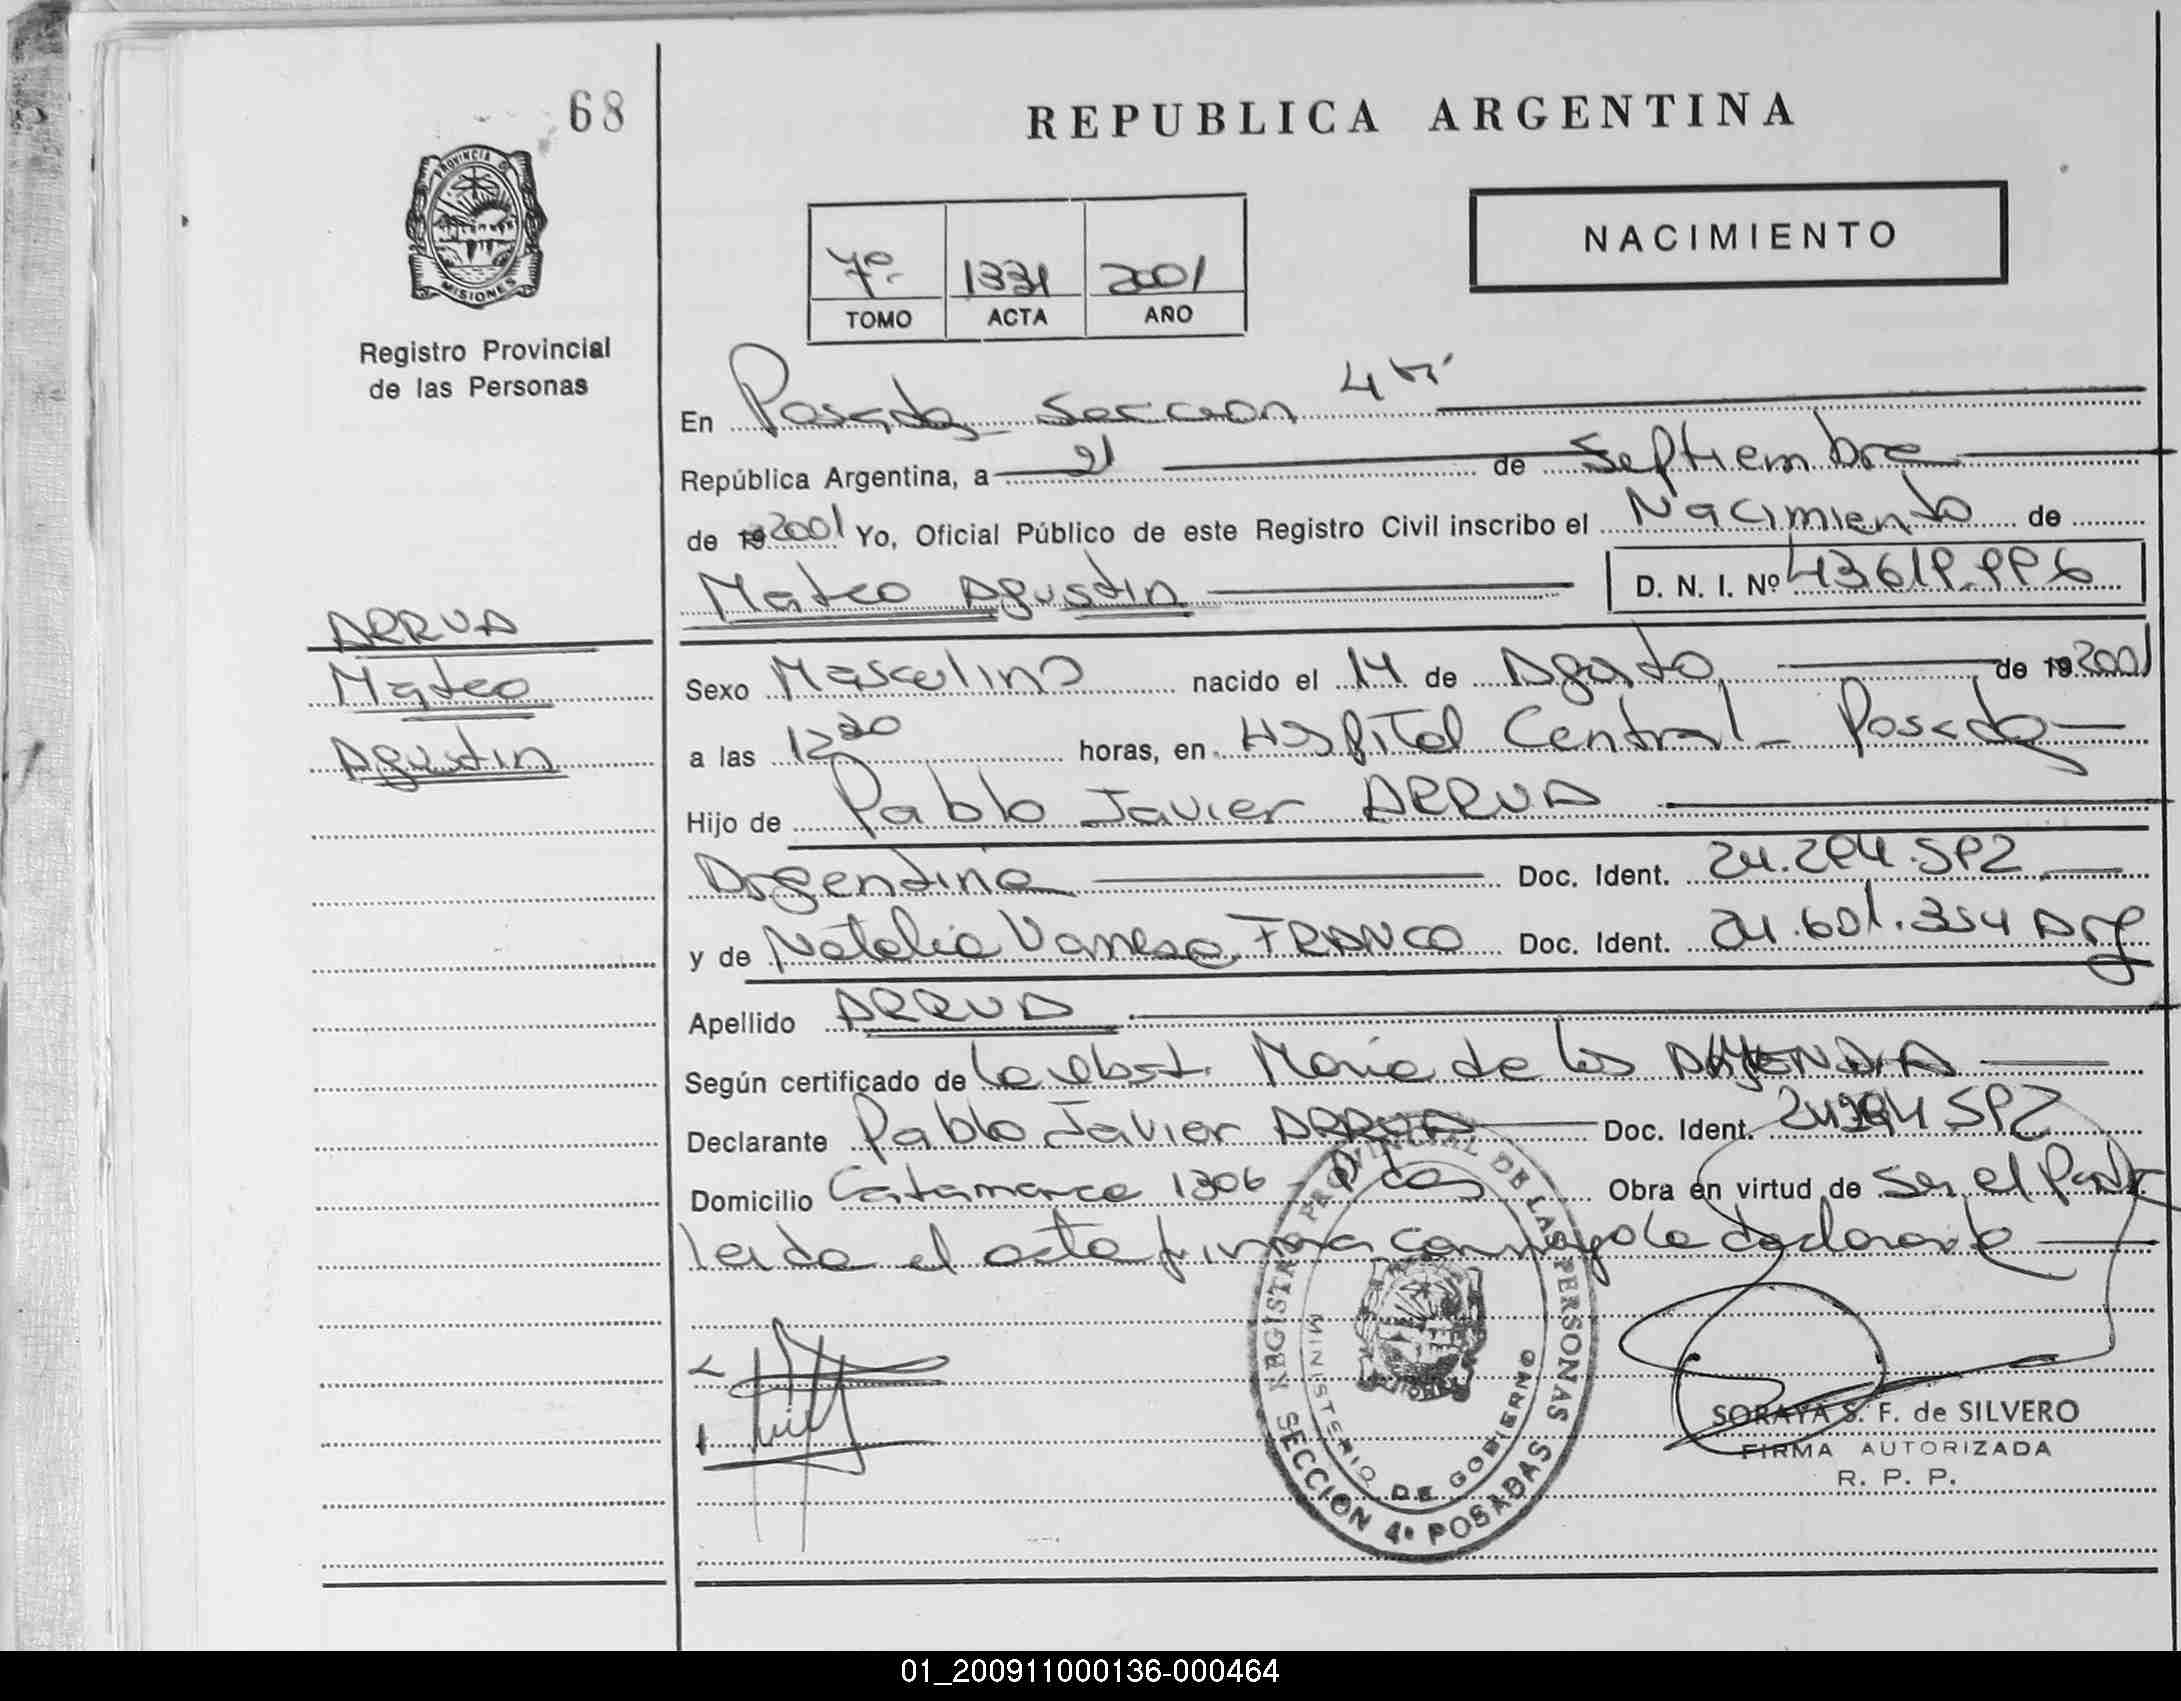 68
REPUBLICA ARGENTINA
PROVINCIA DE
MISIONES
Registro Provincial
de las Personas
7º 1331 2001
TOMO ACTA AÑO
NACIMIENTO
En Posadas Seccion 4ta
República Argentina, a 21 de Septiembre
de 19 2001 Yo, Oficial Público de este Registro Civil inscribo el Nacimiento de
Mateo Agustin D. N. I. Nº
ARRUA
Mateo
Agustin
Sexo Masculino nacido el 14 de Agosto de 19 2001
a las horas, en Hospital Central - Posadas
Hijo de Pablo Javier ARRUA
Argentina Doc. Ident.
y de Natalia Vanesa FRANCO Doc. Ident. 24.601.354 Arg
Apellido ARRUA
Según certificado de la obst. Maria de los
Declarante Pablo Javier ARRUA Doc. Ident.
Domicilio Catamarca 1306 - Pdas Obra en virtud de Ser el Padre
leida el acta firma conmigo la declarante
REGISTRO PROVINCIAL DE LAS PERSONAS
MINISTERIO DE GOBIERNO
SECCION 4ª POSADAS
SORAYA S. F. de SILVERO
FIRMA AUTORIZADA
R. P. P.
01_200911000136-000464